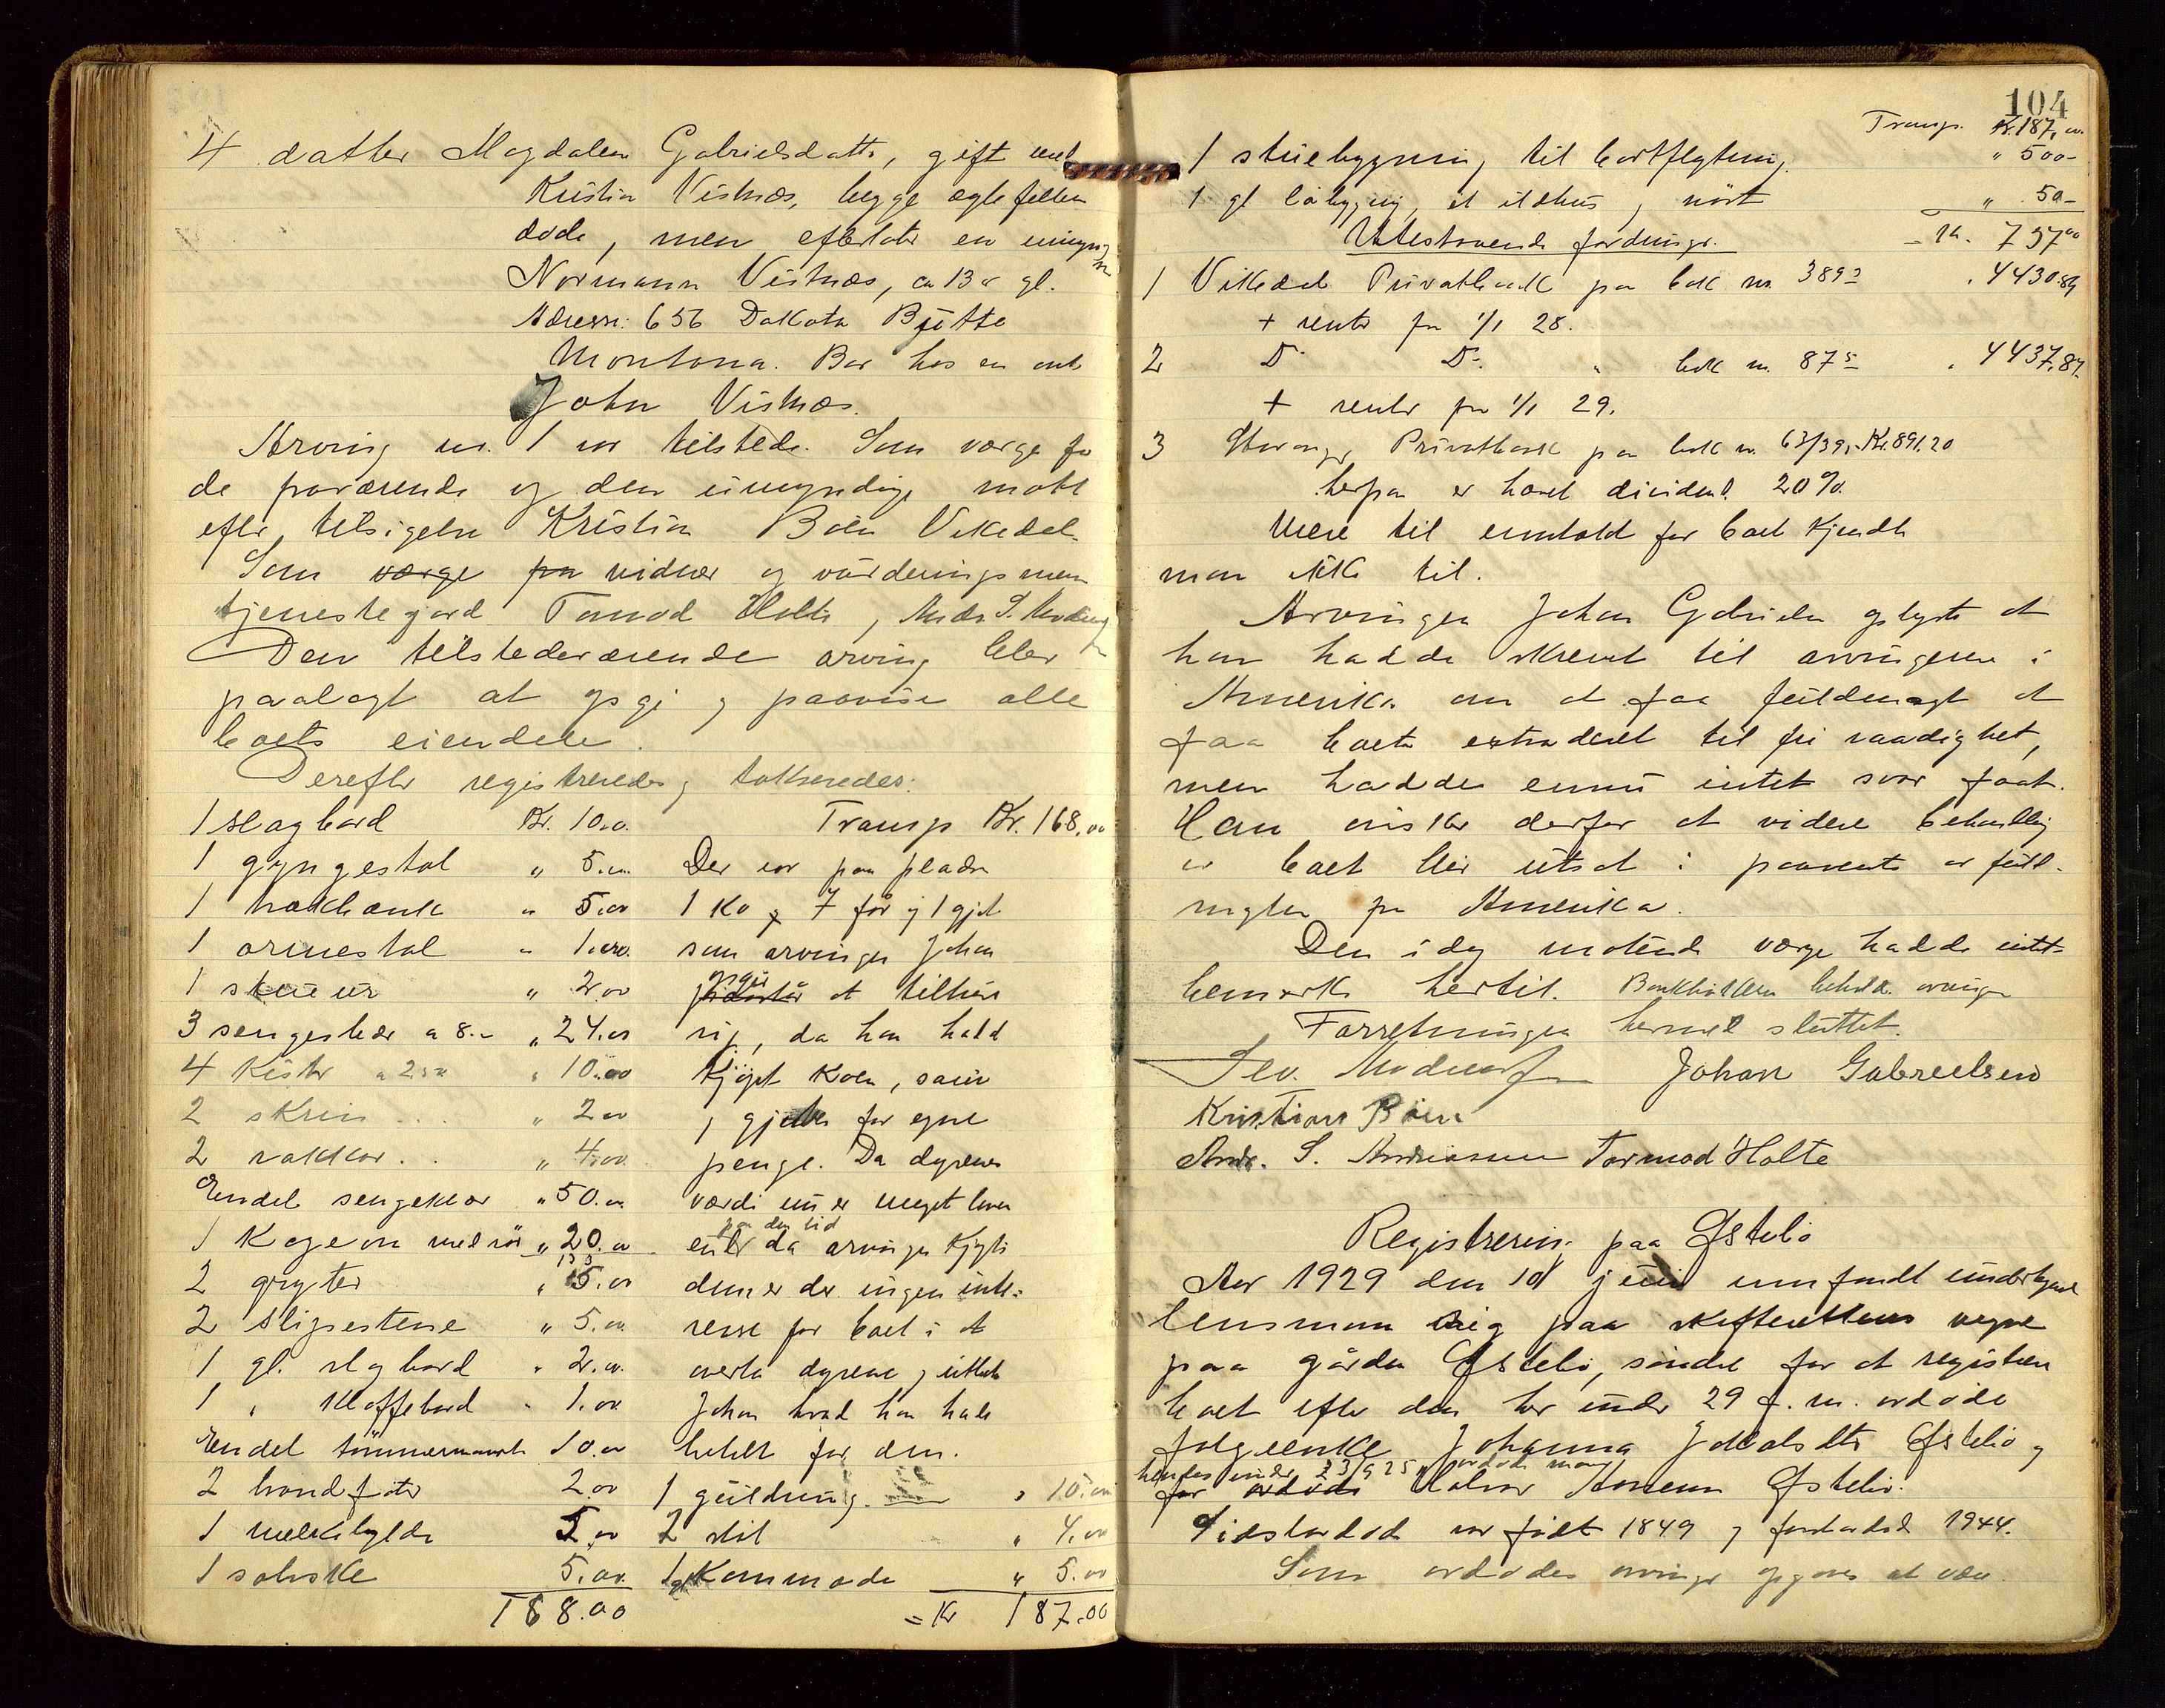 4 datter Magdalena Gabrielsdatter, gift med
Kristian Vistnæs, begge ægtefeller
døde, men efterlater en umyndig
sønn
Normann Vistnæs, ca 13 år gl.
Adresse: 656 Dakota Butte
Montana. Bor hos en onkel
John Vistnæs.
Arving nr. 1 var tilstede. Som værge for
de fraværende og den umyndige møtte
efter tilsigelse Kristian Bøen Vikedal.
Som værge for vidner og vurderingsmenn
tjenestegjorde Tormod Holte, Andr. S.
Den tilstedeværende arving blev
paalagt at opgi og paavise alle
boets eiendele.
Derefter registreredes og takseredes:
1 slagbord Kr. 10.00
1 gyngestol " 5.00
1 trækbænk " 5.00
1 armestol " 1.00
1 stueur " 2.00
3 sengesteder a 8.- " 24.00
4 kister a 2.50 " 10.00
2 skrin " 2.00
2 rokker " 4.00
Endel sengeklær " 50.00
1 kogeovn med rør " 20.00
2 gryter " 15.00
2 slipestene " 5.00
1 gl. slagbord " 2.00
1 " klaffebord " 1.00
Endel tømmermannsv. 10.00
2 vandføter 2.00
1 melkebylde 5.00
1 solviske 5.00
168.00
Transp. Kr. 168.00
Der var paa pladsen
1 ko og 7 får og 1 gjet
som arvingen Johan
opgir
at tilhøre
sig, da han hadde
kjøpt koen, sauer
og gjeter for egne
penge. Da dyrenes
værdi nu er meget lavere
paa den tid
enn da arvingen kjøpte
dem er der ingen inte-
resse for boet i at
overta dyrene og utbetale
Johan hvad han hadde
betalt for dem.
1 guldring " 10.00
2 " 4.00
1 gl. Kommode " 5.00
= Kr 187.00
104
Transp. Kr. 187.00
1 stuebygning til bortflytning " 500-
1 gl. låbygning, et ildhus, nøst " 50-
Utestaaende fordringer. = Kr. 737.00
1 Vikedal Privatbank paa bok nr. 389 " 4430.89
+ renter fra 1/1 28.
2 Do Do " bok nr. 875 " 4437.87
+ renter fra 1/1 29.
3 Stavanger Privatbank paa bok nr. 63/39, Kr. 891.20
herpaa er hævet dividend. 20%.
Mere til inntekt for boet kjendte
man ikke til.
Arvingen Johan Gabrielsen oplyste at
han hadde skrevet til arvingerne i
Amerika om at faa fuldmagt at
faa boet extraderet til fri raadighet,
men hadde ennu intet svar faat.
Han ønsker derfor at videre behandling
av boet blir utsat i paavente av fuld-
magter fra Amerika.
Den idag møtende værge hadde intet
bemerke hertil. Bankbøkkene beholdt arvingen
Forretningen hermed sluttet.
Johan Gabrielsen
Kristian Bøen
Andr. S. Andreassen Tormod Holte
Registrering paa Østebø
Aar 1929 den 10 juni innfandt undertegnede
lensmann sig paa skifterettens vegne
paa gården Østebø, søndre for at registrere
boet efter den her under 29 f. m. avdøde
føderenke Johanna Østebø og
hendes under 23 9 25 avdøde mann
for avdøde Halvor Østebø.
Sidstavdøde var født 1849 og 1944.
Som avdødes arvinger opgaves at være